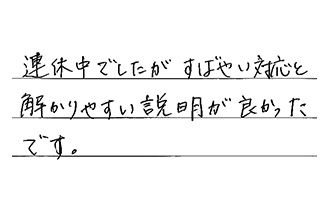 連休中でしたが すばやい対応と
解かりやすい説明が良かった
です。